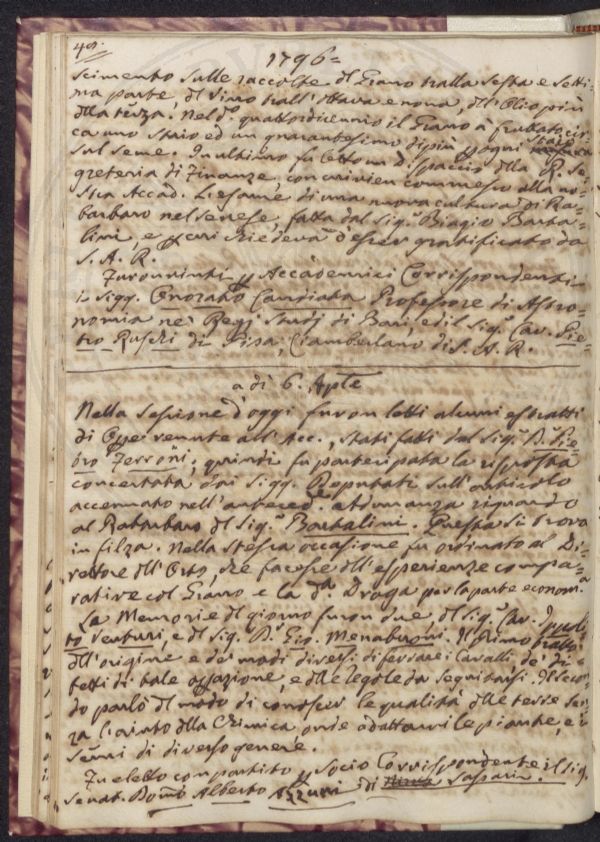 48.
1796=
scimento sulle raccolte del Grano tralla sesta e setti=
ma parte, del Vino trall'ottava e nona, dell'Olio più
della terza. Nel do. quattordicennio il Grano à fruttato cir
ca uno staio ed un quarantesimo dipiù p ogni staio
sul seme. In ultimo fu letto un dispaccio della R. Se
greteria di Finanze, con cui vien commesso alla no=
stra Accad. L'esame di una nuova cultura di Ra=
barbaro nel Senese, fatta dal Sigr. Biagio Barta=
lini, e p cui chiedeva d'esser gratificato da
S. A. R.
Furon vinti p Accademici Corrispondenti
i Sigg. Onorato Candiata Professore di Astro=
nomia ne' Regj Studj di Bari, ed il Sigr. Cav. Pie=
tro Ruschi di Pisa, Ciamberlano di S. A. R.
a dì 6. Aple
Nella Sessione d'oggi furon letti alcuni estratti
di Opere venute all'Acc., stati fatti dal Sigr. D. Pie=
tro Ferroni, quindi fu partecipata la risposta
concertata dai Sigg. Deputati sull'articolo
accennato nell'anteced. adunanza riguardo
al Rabarbaro del Sigr. Bartalini. Questa si trova
in filza. Nella stessa occasione fu ordinato al Di=
rettore dell'Orto, che facesse dell'esperienze compa=
rative col Grano e la da. Droga per la parte econom.a
Le Memorie del giorno furon due del Sigr. Cav. Ippoli
to Venturi, e del Sig. D. Gio. Menabuoni. Il primo trattò
dell'origine e de' modi diversi di ferrare i Cavalli, de' di=
fetti di tale operazione, e delle regole da seguitarsi. Il secon
do parlò del modo di conoscer le qualità delle terre sen
za l'aiuto della Chimica, onde adattarvi le piante, e i
semi di diverso genere.
Fu eletto con partito p Socio Corrispondente il Sig.
Senat. Domo Alberto Azzuni di Sassari.